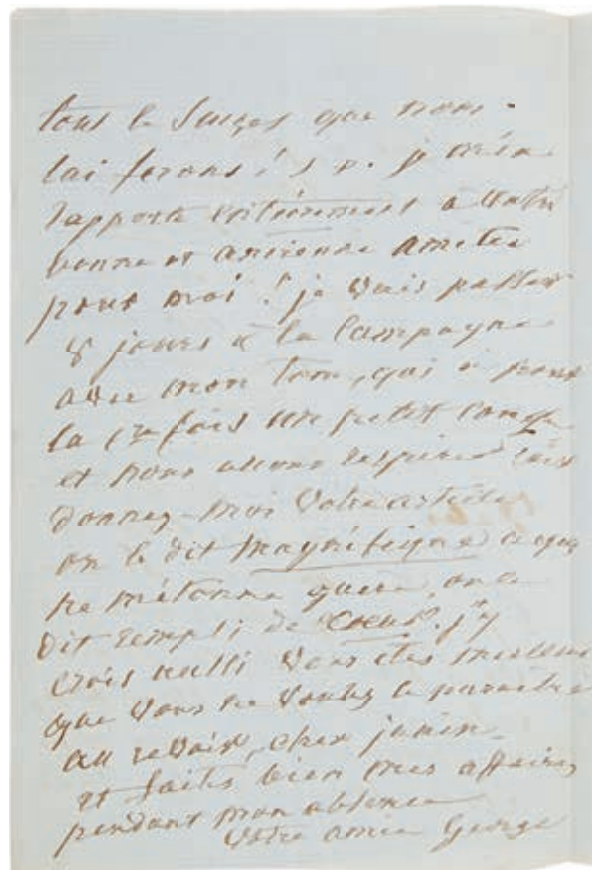 tous le Succes que nous
lui ferons je m'en
rapporte entièrement a Votre
bonne et ancienne amitiée
pour moi ! je Vais passer
8 jours à la Campagne
avec mon tom, qui a pour
la 1re fois un petit Congé
et nous allons respirer
donnez-moi Votre article
on le dit magnifique ce qui
ne m'étonne guere, on le
Dit rempli de Coeur. j'y
Crois aussi Vous êtes meilleur
que Vous ne Voulez le paraitre
au revoir, cher janin
et faites bien mes affaires
pendant mon absence
Votre amie George